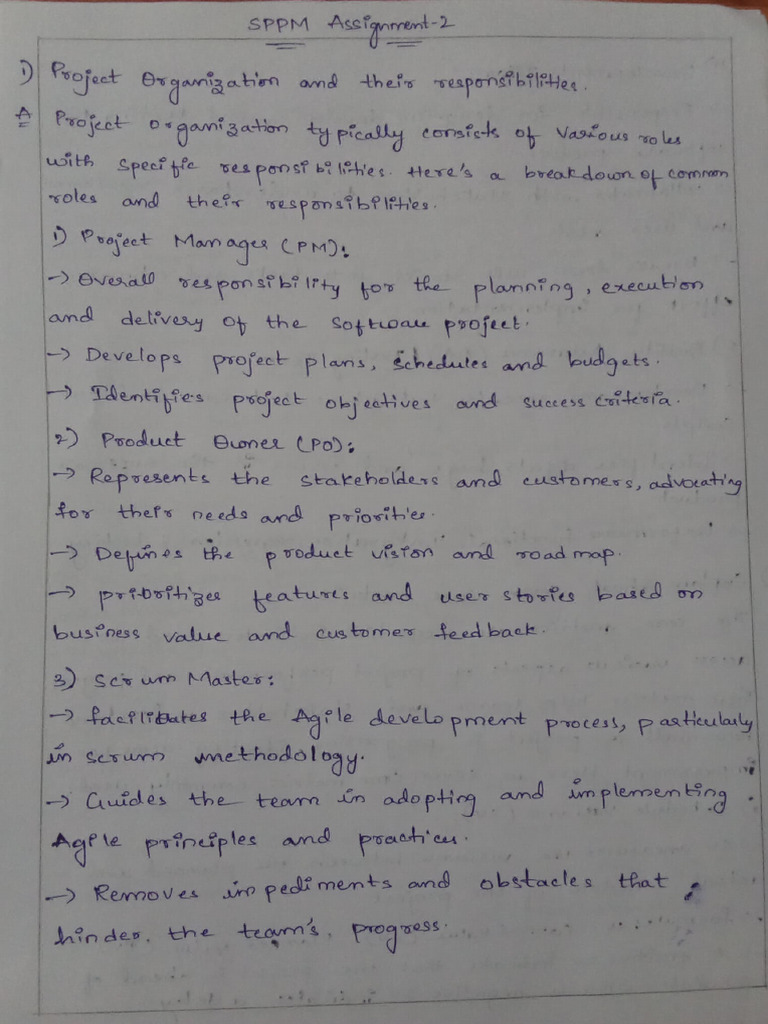 SPPM Assignment-2
1) Project Organization and their responsibilities.
A Project organization typically consists of various roles
with specific responsibilities. Here's a breakdown of common
roles and their responsibilities.
1) Project Manager (PM):
→ Overall responsibility for the planning, execution
and delivery of the software project.
→ Develops project plans, schedules and budgets.
→ Identifies project objectives and success criteria.
2) Product Owner (PO):
→ Represents the stakeholders and customers, advocating
for their needs and priorities.
→ Defines the product vision and road map.
→ prioritizes features and user stories based on
business value and customer feedback.
3) Scrum Master:
→ facilitates the Agile development process, particularly
in scrum methodology.
→ Guides the team in adopting and implementing
Agile principles and practices.
→ Removes impediments and obstacles that
hinder the team's progress.